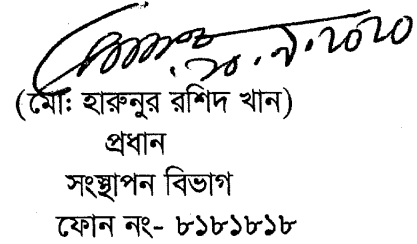 (মোঃ হারুনুর রশিদ খান)
প্রধান
সংস্থাপন বিভাগ
ফোন নং- ৮১৮১৮১৮